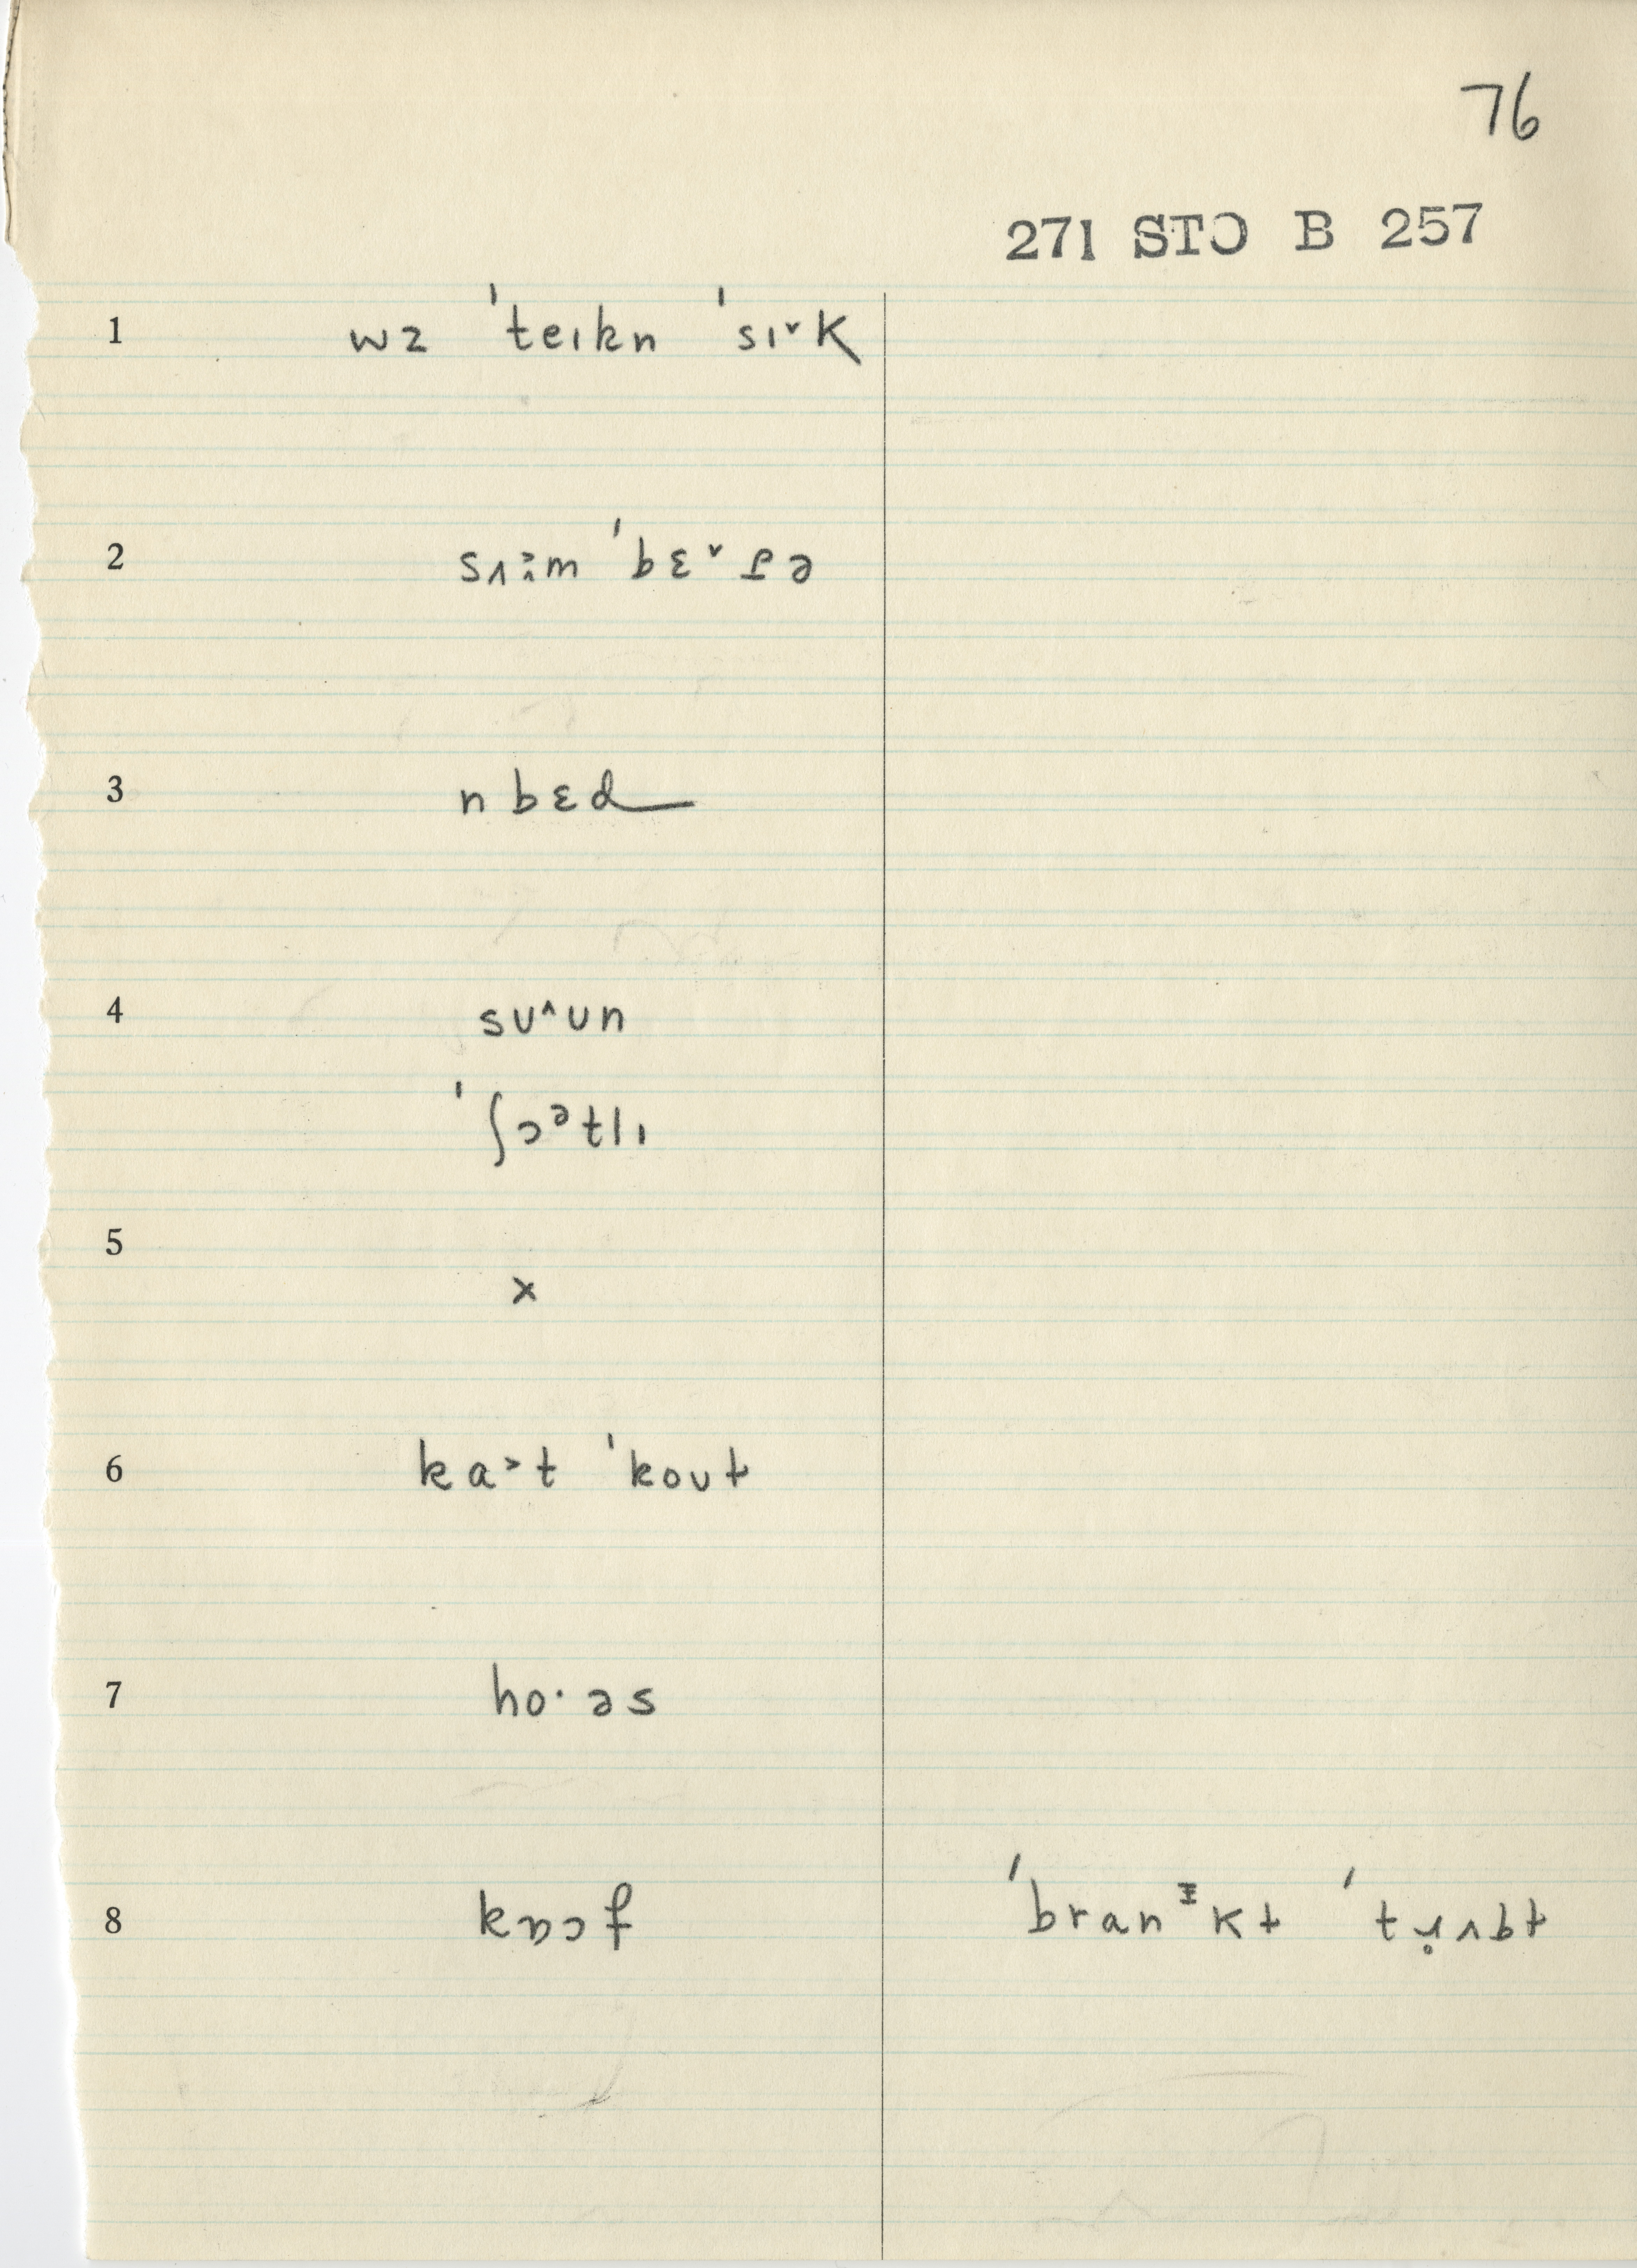 76
271 STO B 257
1 wz ˈteɪkn ˈsɪ˅k
2 ˈbɛ˅ɾə
3 n bɛd
4 sʊ˄ʊn
ˈʃɔᵊtlɪ
5 x
6 ka˃t ˈkoʊt
7 ho·əs
8 kɒɔf ˈbranᶦkt